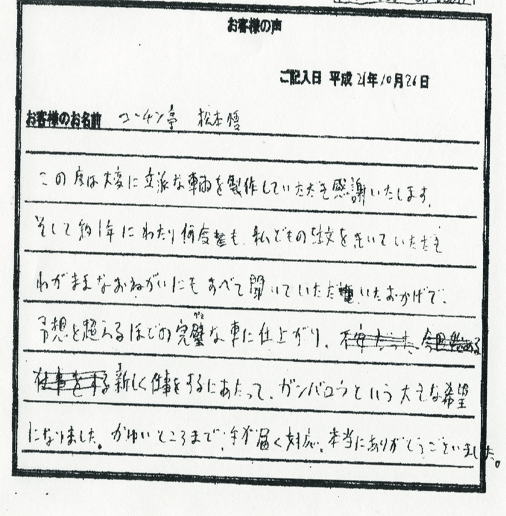 お客様の声
ご記入日 平成 21年10月26日
お客様のお名前 コーチン亭 松本悟
この度は大変に立派な車両を製作していただき感謝いたします。
そして約1年にわたり何度も、私どもの注文をきいていただき
わがままなおねがいにもすべて聞いていただいたおかげで、
予想を超えるほどの完璧な車に仕上がり、不安だった
仕事をする新しく仕事をするにあたって、ガンバロウという大きな希望
になりました。かゆいところまで手が届く対応、本当にありがとうございました。